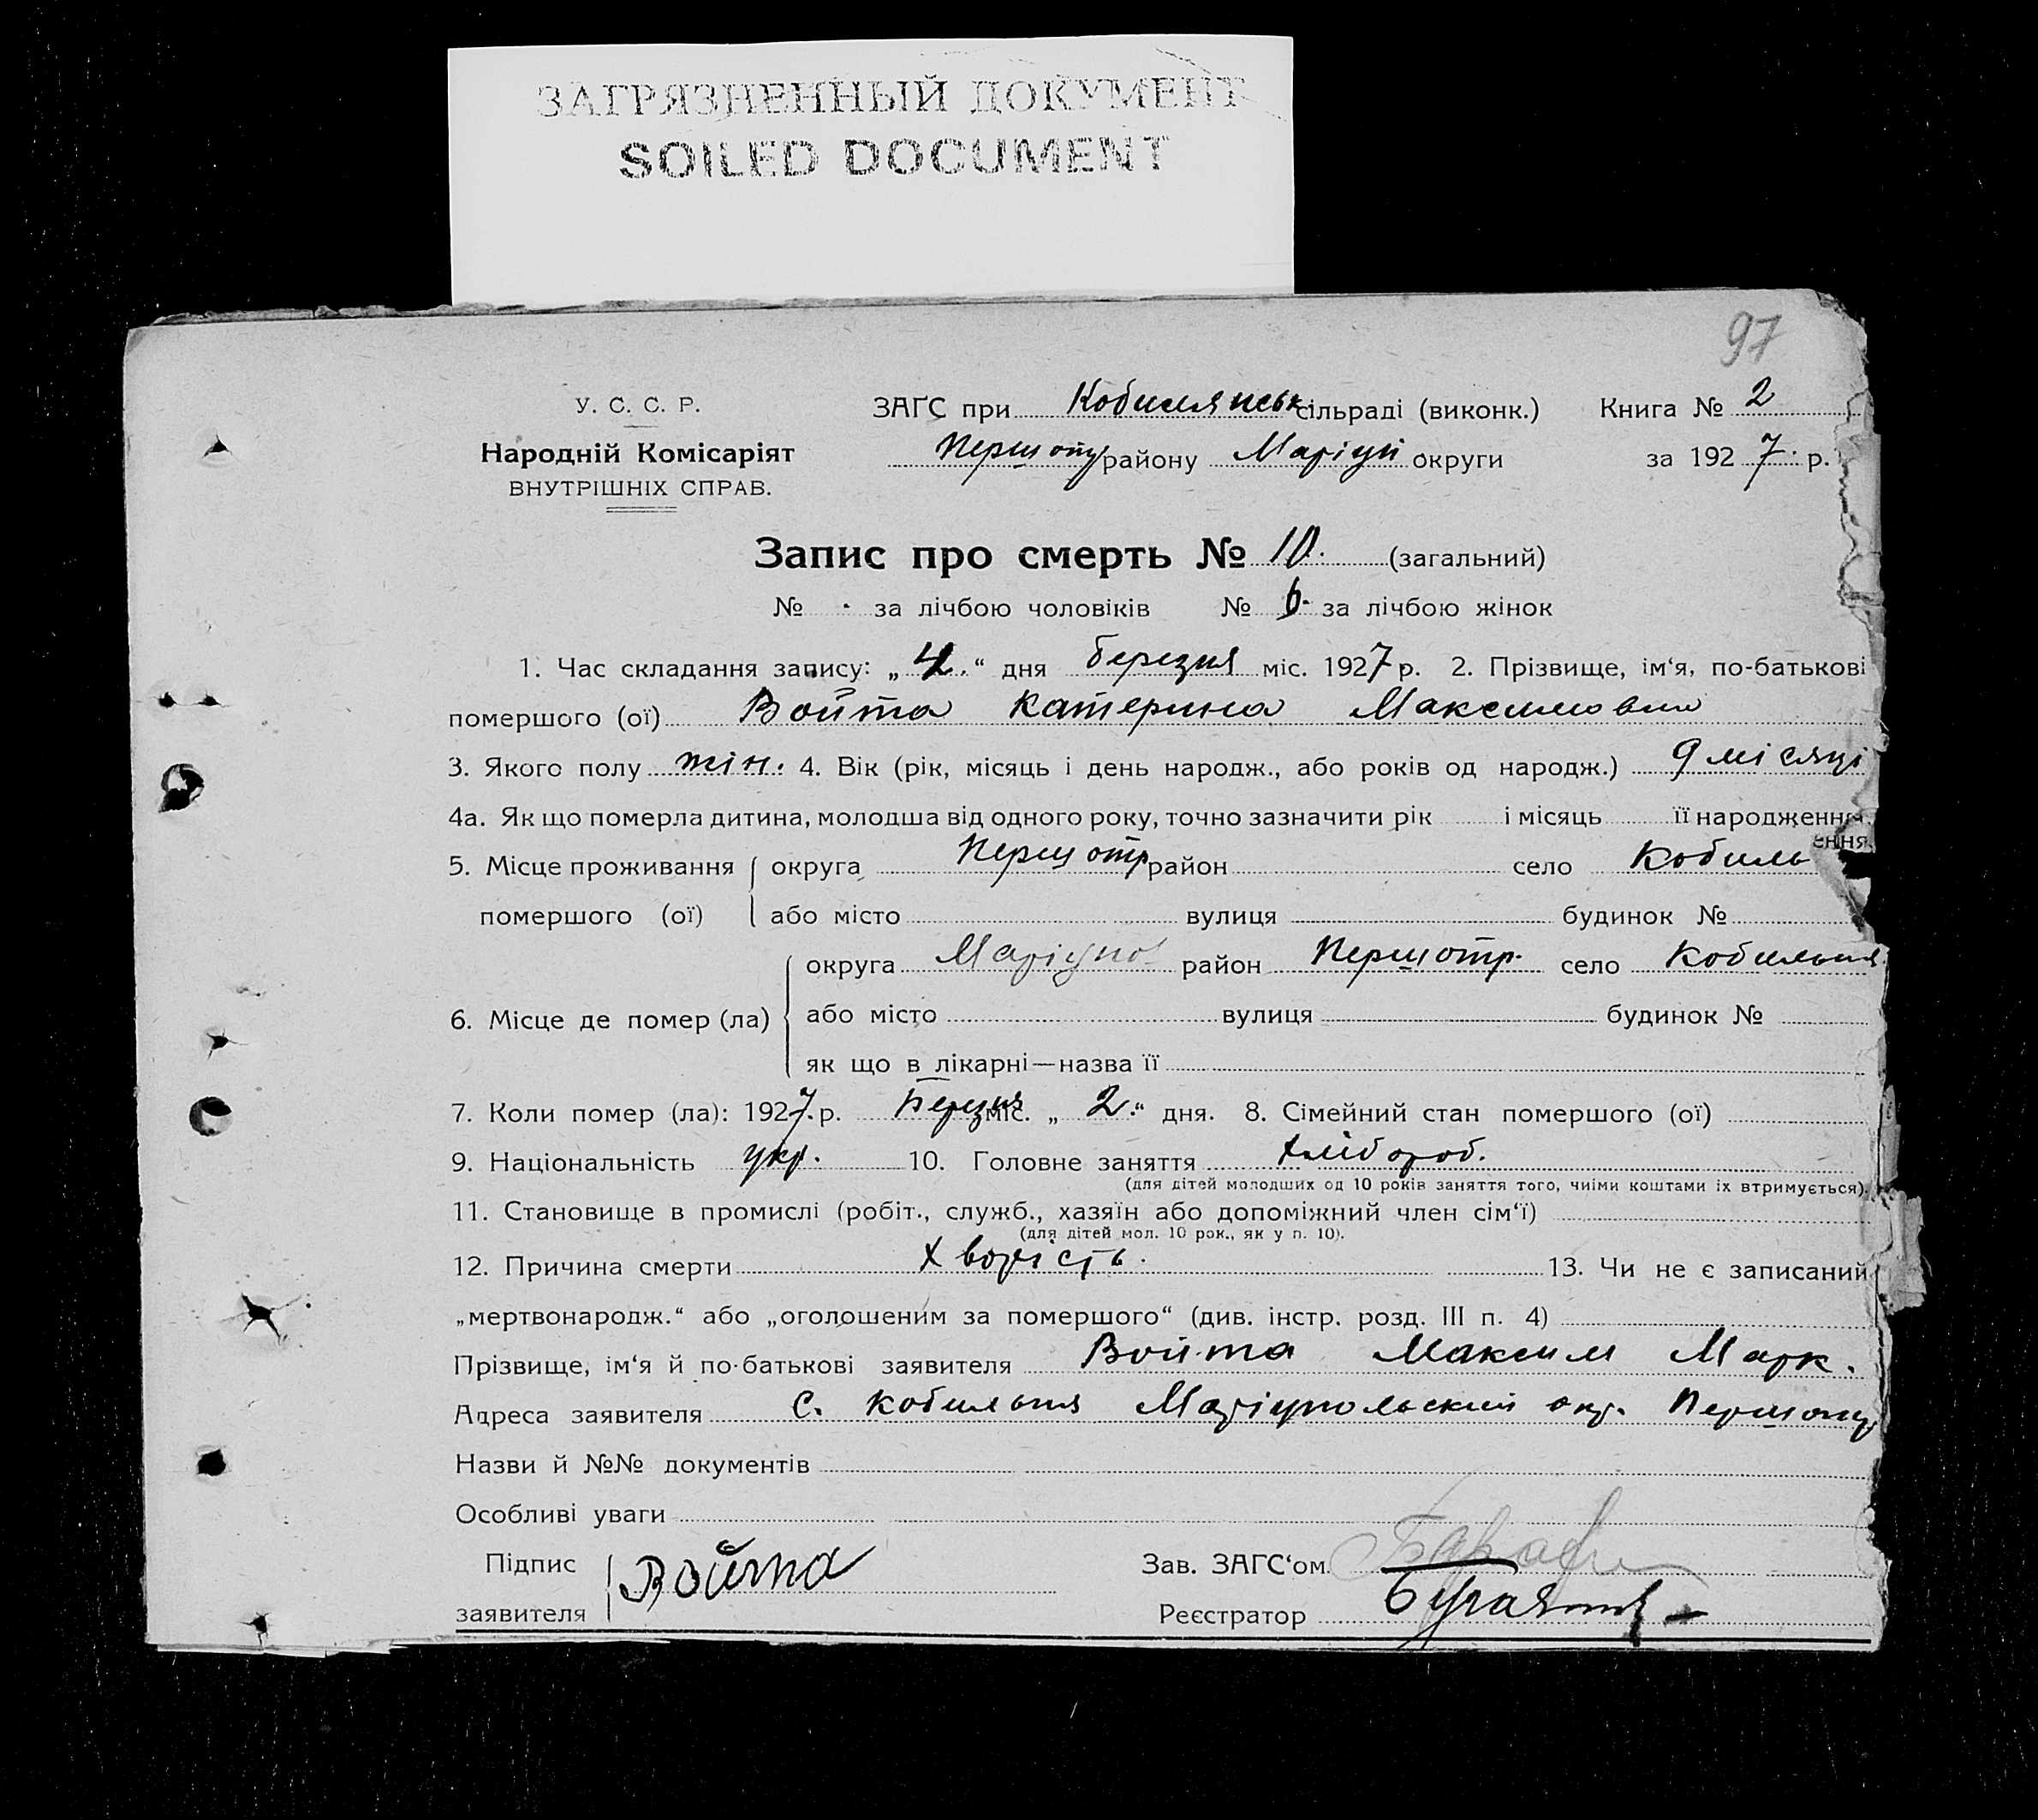 ЗАГРЯЗНЕННЫЙ ДОКУМЕНТ
SOILED DOCUMENT
97
У. С. С. Р.
Народній Комісаріят
ВНУТРІШНІХ СПРАВ.
ЗАГС при Кобилянськ сільраді (виконк.) Книга № 2
Першотр району Маріуп округи за 1927 р.
Запис про смерть № 10. (загальний)
№ за лічбою чоловіків № 6. за лічбою жінок
1. Час складання запису: „4.“ дня березня міс. 1927 р. 2. Прізвище, ім‘я, по-батькові
помершого (ої) Войта Катерина Максимовна
3. Якого полу жін. 4. Вік (рік, місяць і день народж., або років од народж.) 9 місяці
4а. Як що померла дитина, молодша від одного року, точно зазначити рік і місяць її народження.
ення.
5. Місце проживання округа Першотр район село Кобиль
помершого (ої) або місто вулиця будинок №
округа Маріупол район Першотр. село Кобильня
6. Місце де помер (ла) або місто вулиця будинок №
як що в лікарні—назва її
7. Коли помер (ла): 1927. р. Березня міс. „2.“ дня. 8. Сімейний стан помершого (ої)
9. Національність укр. 10. Головне заняття хлібороб.
(для дітей молодших од 10 років заняття того, чиїми коштами їх втримується).
11. Становище в промислі (робіт., служб., хазяїн або допоміжний член сім‘ї)
(для дітей мол. 10 рок., як у п. 10).
12. Причина смерти Хворість. 13. Чи не є записаний
„мертвонародж.“ або „оголошеним за помершого“ (див. інстр. розд. III п. 4)
Прізвище, ім‘я й по-батькові заявителя Войта Максим Марк.
Адреса заявителя с. Кобильня Маріупольский окр. Першотр
Назви й №№ документів
Особливі уваги
Підпис заявителя Войта
Зав. ЗАГС‘ом
Реєстратор